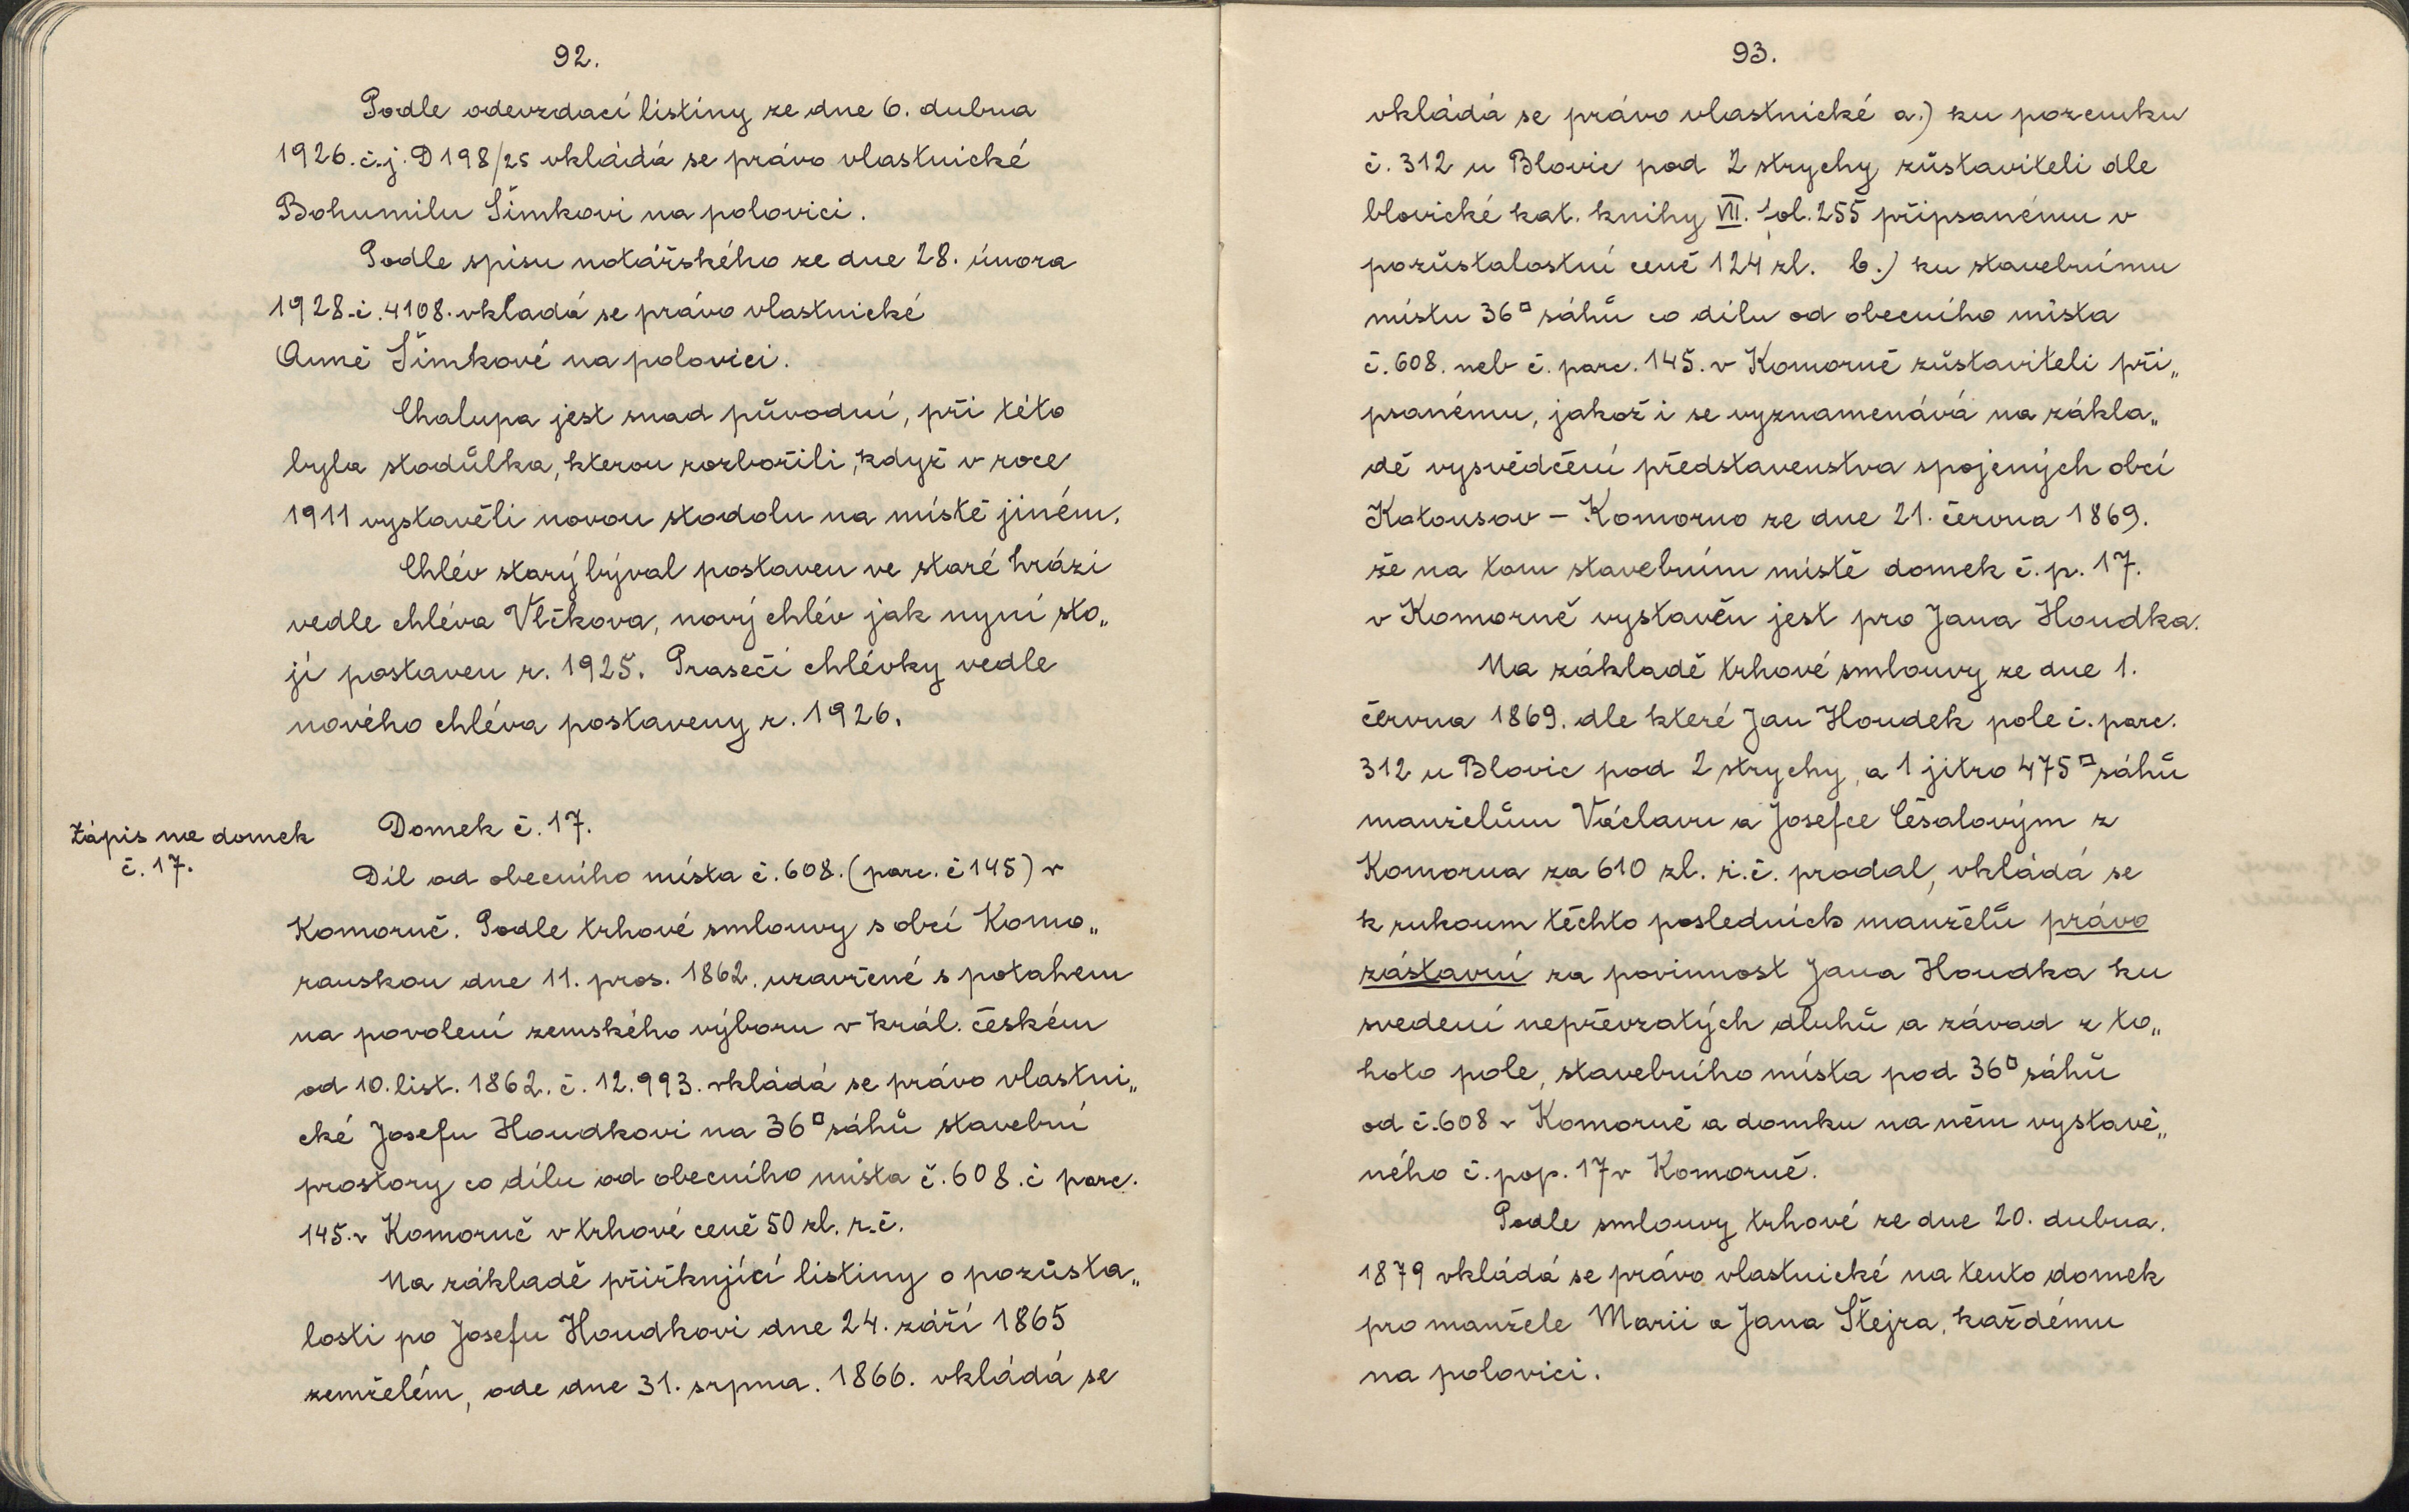 92.
Podle odevzdací listiny ze dne 6. dubna
1926. č.j. D 198/25 vkládá se právo vlastnické
Bohumilu Šimkovi na polovici.
Podle spisu notářského ze dne 28. února
1928. č. 4108. vkladá se právo vlastnické
Anně Šimkové na polovici.
Chalupa jest snad původní, při této
byla stodůlka, kterou rozbořili, když v roce
1911 vystavěli novou stodolu na místě jiném.
Chlév starý býval postaven ve staré hrázi
vedle chléva Vlčkova, nový chlév jak nyní sto„
jí postaven r. 1925. Prasečí chlévky vedle
nového chléva postaveny r. 1926.
Zápis na domek
č. 17.
Domek č. 17.
Díl od obecního místa č. 608. (parc. č 145) v
Komorně. Podle trhové smlouvy s obcí Komo„
rauskou dne 11. pros. 1862. uzavřené s potahem
na povolení zemského výboru v král. českém
od 10. list. 1862. č. 12.993. vkládá se právo vlastni„
cké Josefu Houdkovi na 36□ sáhů stavební
prostory co dílu od obecního místa č. 608. č parc.
145. v Komorně v trhové ceně 50 zl. r.č.
Na základě přiřknjící listiny o pozůsta„
losti po Josefu Houdkovi dne 24. září 1865
zemřelém, ode dne 31. srpna. 1866. vkládá se
93.
vkládá se právo vlastnické a.) ku pozemku
č. 312 u Blovic pod 2 strychy zůstaviteli dle
blovické kat. knihy VII. fol. 255 připsanému v
pozůstalostní ceně 124 zl. b.) ku stavebnímu
místu 36□ sáhů co dílu od obecního místa
č. 608. neb č. parc. 145. v Komorně zůstaviteli při„
psanému, jakož i se vyznamenává na zákla„
dě vysvědčení představenstva spojených obcí
Katousov – Komorno ze dne 21. června 1869.
že na tom stavebním místě domek č. p. 17.
v Komorně vystavěn jest pro Jana Houdka.
Na základě trhové smlouvy ze dne 1.
června 1869. dle které Jan Houdek pole č. parc.
312 u Blovic pod 2 strychy, a 1 jitro 475□ sáhů
manželům Václavu a Josefce Češalovým z
Komorna za 610 zl. r.č. prodal, vkládá se
k rukoum těchto posledních manželů právo
zástavní za povinnost Jana Houdka ku
svedení nepřevzatých dluhů a závad z to„
hoto pole, stavebního místa pod 36□ sáhů
od č. 608 v Komorně a domku na něm vystavě„
ného č. pop. 17 v Komorně.
Podle smlouvy trhové ze dne 20. dubna.
1879 vkládá se právo vlastnické na tento domek
pro manžele Marii a Jana Štejra, každému
na polovici.